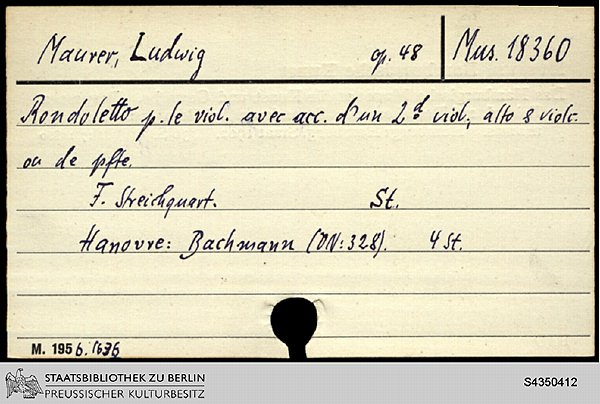 Maurer, Ludwig op. 48 Mus. 18360
Rondoletto p. le viol. avec acc. d'un 2d viol., alto & violc.
ou de pfte.
F. Streichquart. St.
Hanovre: Bachmann (VN: 328). 4 St.
M. 1956.
STAATSBIBLIOTHEK ZU BERLIN
PREUSSISCHER KULTURBESITZ
S4350412